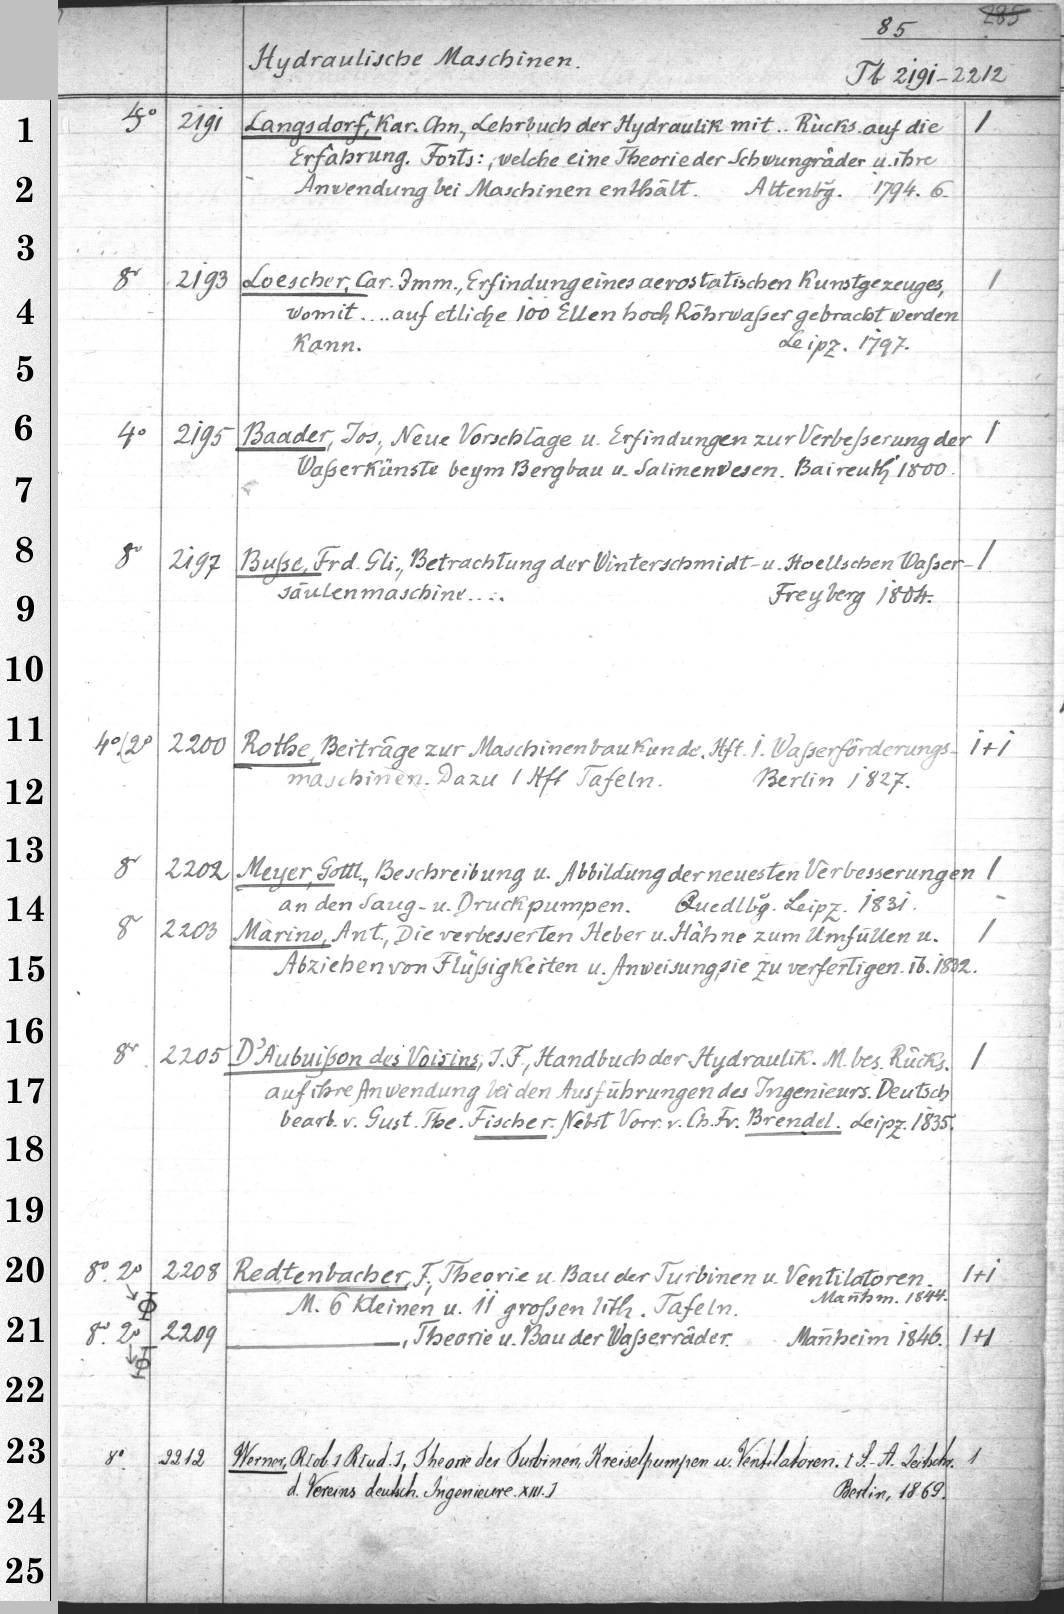 85 285
Hydraulische Maschinen. Tb 2191-2212
1 4° 2191 Langsdorf, Kar. Chn., Lehrbuch der Hydraulik mit .. Rücks. auf die 1
Erfahrung. Forts: , welche eine Theorie der Schwungräder u. ihre
2 Anwendung bei Maschinen enthält. Altenbg. 1794. 6.
3
8° 2193 Loescher, Car. Imm., Erfindung eines aerostatischen Kunstgezeuges, 1
4 womit .... auf etliche 100 Ellen hoch Röhrwaßer gebracht werden
kann. Leipz. 1797.
5
6 4° 2195 Baader, Jos., Neue Vorschläge u. Erfindungen zur Verbeßerung der 1
Waßerkünste beym Bergbau u. Salinenwesen. Baireuth 1800.
7
8 8° 2197 Buße, Frd. Gli., Betrachtung der Winterschmidt- u. Hoellschen Waßer- 1
9 säulenmaschine .... Freyberg 1804.
10
11 4°/2° 2200 Rothe, Beiträge zur Maschinenbaukunde. Hft. 1. Waßerförderungs- 1+1
12 maschinen. Dazu 1 Hft Tafeln. Berlin 1827.
13 8° 2202 Meyer, Gottl., Beschreibung u. Abbildung der neuesten Verbesserungen 1
14 an den Saug- u. Druckpumpen. Quedlbg. Leipz. 1831.
8° 2203 Marino, Ant., Die verbesserten Heber u. Hähne zum Umfüllen u. 1
15 Abziehen von Flüßigkeiten u. Anweisung, sie zu verfertigen. ib. 1832.
16
8° 2205 D'Aubuißon des Voisins, J. F., Handbuch der Hydraulik. M. bes. Rücks. 1
17 auf ihre Anwendung bei den Ausführungen des Ingenieurs. Deutsch
bearb. v. Gust. The. Fischer. Nebst Vorr. v. Ch. Fr. Brendel. Leipz. 1835.
18
19
20 8°. 2° 2208 Redtenbacher, F., Theorie u. Bau der Turbinen u. Ventilatoren. 1+1
M. 6 kleinen u. 11 großen lith. Tafeln. Mañhm. 1844.
21 8°. 2° 2209 ———, Theorie u. Bau der Waßerräder. Mañheim 1846. 1+1
22
23 8° 2212 Werner, R[ob.] R[ud.], Theorie der Turbinen, Kreiselpumpen u. Ventilatoren. [S.-A. Zeitschr. 1
d. Vereins deutsch. Ingenieure. XIII.] Berlin, 1869.
24
25